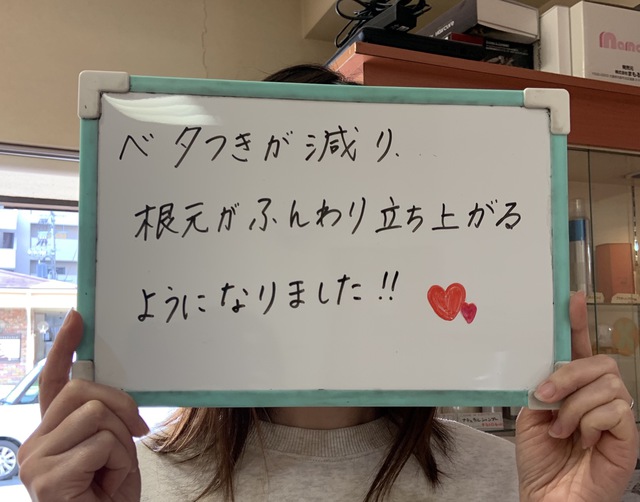 ベタつきが減り、
根元がふんわり立ち上がる
ようになりました!!
mama
発売元